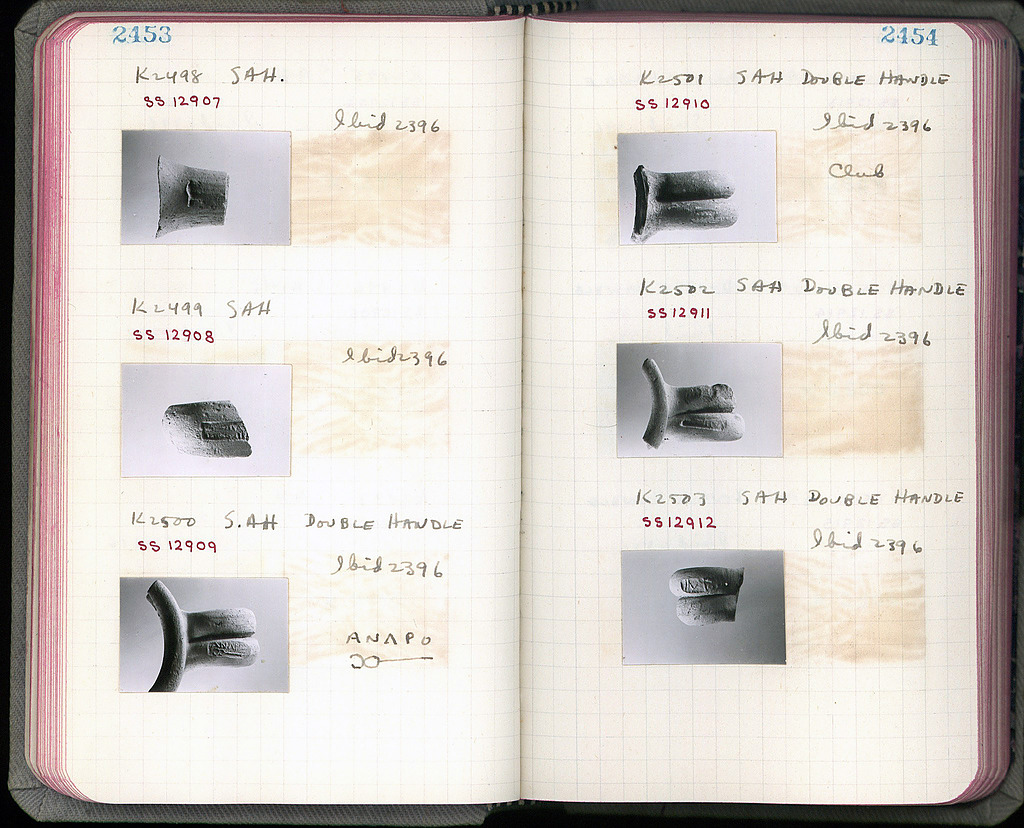 2453
K2498 SAH.
SS 12907
Ibid 2396
K2499 SAH
SS 12908
Ibid 2396
K2500 S.AH DOUBLE HANDLE
SS 12909
Ibid 2396
ANAPO
2454
K2501 SAH DOUBLE HANDLE
SS 12910
Ibid 2396
Club
K2502 SAH DOUBLE HANDLE
SS 12911
Ibid 2396
K2503 SAH DOUBLE HANDLE
SS 12912
Ibid 2396